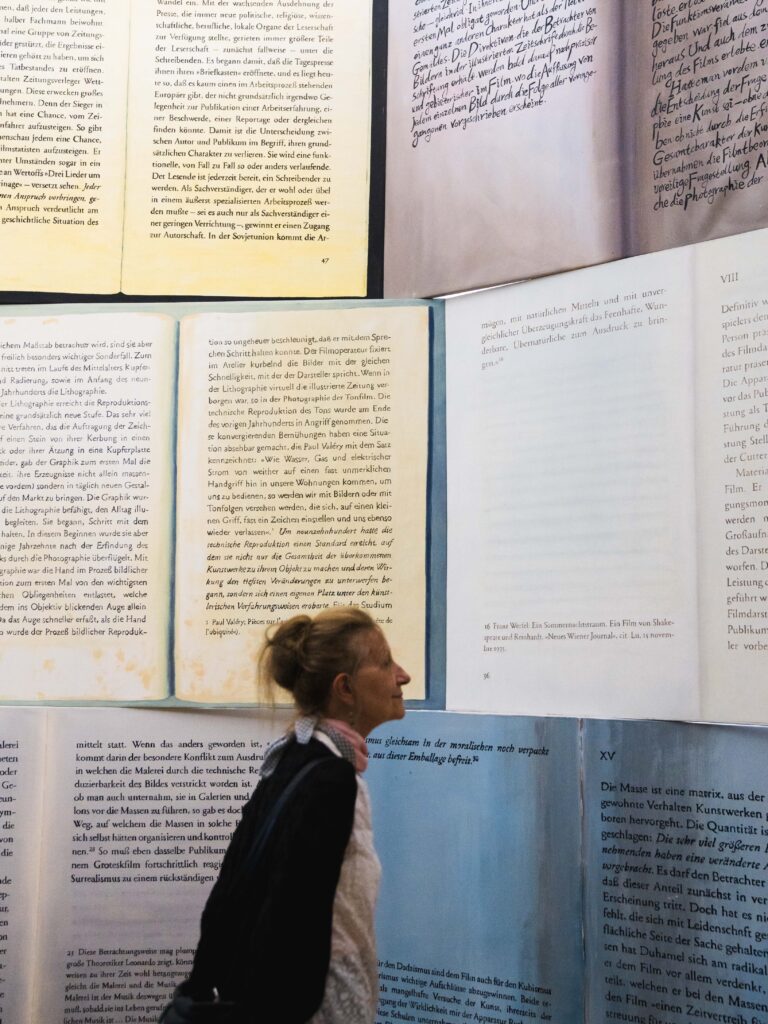 daß jeder den Leistungen,
halber Fachmann beiwohnt
mal eine Gruppe von Zeitungs-
der gestützt, die Ergebnisse ei-
ieren gehört zu haben, um sich
Tatbestandes zu eröffnen.
talten Zeitungsverleger Wett-
ungen. Diese erwecken großes
nehmern. Denn der Sieger in
hat eine Chance, vom Zei-
nfahrer aufzusteigen. So gibt
enschau jedem eine Chance,
ilmstatisten aufzusteigen. Er
nter Umständen sogar in ein
an Wertoffs »Drei Lieder um
rinage« – versetzt sehen. Jeder
nen Anspruch vorbringen, ge-
Anspruch verdeutlicht am
geschichtliche Situation des
Wandel ein. Mit der wachsenden Ausdehnung der
Presse, die immer neue politische, religiöse, wissen-
schaftliche, berufliche, lokale Organe der Leserschaft
zur Verfügung stellte, gerieten immer größere Teile
der Leserschaft – zunächst fallweise – unter die
Schreibenden. Es begann damit, daß die Tagespresse
ihnen ihren »Briefkasten« eröffnete, und es liegt heu-
te so, daß es kaum einen im Arbeitsprozeß stehenden
Europäer gibt, der nicht grundsätzlich irgendwo Ge-
legenheit zur Publikation einer Arbeitserfahrung, ei-
ner Beschwerde, einer Reportage oder dergleichen
finden könnte. Damit ist die Unterscheidung zwi-
schen Autor und Publikum im Begriff, ihren grund-
sätzlichen Charakter zu verlieren. Sie wird eine funk-
tionelle, von Fall zu Fall so oder anders verlaufende.
Der Lesende ist jederzeit bereit, ein Schreibender zu
werden. Als Sachverständiger, der er wohl oder übel
in einem äußerst spezialisierten Arbeitsprozeß wer-
den mußte – sei es auch nur als Sachverständiger ei-
ner geringen Verrichtung –, gewinnt er einen Zugang
zur Autorschaft. In der Sowjetunion kommt die Ar-
47
sche – gleichviel. In ihnen
ersten Mal obligat geworden. Und
einen ganz anderen Charakter hat als der Titel
Gemäldes. Die Direktiven, die der Betrachter von
Bildern in der illustrierten Zeitschrift durch die Be-
schriftung erhält, werden bald darauf noch präziser
und gebieterischer im Film, wo die Auffassung von
jedem einzelnen Bild durch die Folge aller vorange-
gangenen vorgeschrieben erscheint.
löste erlosch
Die Funktionsveränderung
gegeben war, fiel aus dem
heraus. Und auch dem
lung des Films erlebte,
Hatte man vordem v
die Entscheidung der Frage
phie eine Kunst sei – ohne
ben: ob nicht durch die Erf
Gesamtcharakter der Kunst
übernahmen die Filmtheore
voreilige Fragestellung. A
che die Photographie der
lichem Maßstab betrachtet wird, sind sie aber
freilich besonders wichtiger Sonderfall. Zum
nitt treten im Laufe des Mittelalters Kupfer-
nd Radierung, sowie im Anfang des neun-
Jahrhunderts die Lithographie.
er Lithographie erreicht die Reproduktions-
eine grundsätzlich neue Stufe. Das sehr viel
e Verfahren, das die Auftragung der Zeich-
f einen Stein von ihrer Kerbung in einen
k oder ihrer Ätzung in eine Kupferplatte
det, gab der Graphik zum ersten Mal die
keit, ihre Erzeugnisse nicht allein massen-
e vordem) sondern in täglich neuen Gestal-
uf den Markt zu bringen. Die Graphik wur-
die Lithographie befähigt, den Alltag illu-
begleiten. Sie begann, Schritt mit dem
halten. In diesem Beginnen wurde sie aber
nige Jahrzehnte nach der Erfindung des
ks durch die Photographie überflügelt. Mit
graphie war die Hand im Prozeß bildlicher
tion zum ersten Mal von den wichtigsten
chen Obliegenheiten entlastet, welche
dem ins Objektiv blickenden Auge allein
Da das Auge schneller erfaßt, als die Hand
o wurde der Prozeß bildlicher Reproduk-
tion so ungeheuer beschleunigt, daß er mit dem Spre-
chen Schritt halten konnte. Der Filmoperateur fixiert
im Atelier kurbelnd die Bilder mit der gleichen
Schnelligkeit, mit der der Darsteller spricht. Wenn in
der Lithographie virtuell die illustrierte Zeitung ver-
borgen war, so in der Photographie der Tonfilm. Die
technische Reproduktion des Tons wurde am Ende
des vorigen Jahrhunderts in Angriff genommen. Die-
se konvergierenden Bemühungen haben eine Situa-
tion absehbar gemacht, die Paul Valéry mit dem Satz
kennzeichnet: »Wie Wasser, Gas und elektrischer
Strom von weither auf einen fast unmerklichen
Handgriff hin in unsere Wohnungen kommen, um
uns zu bedienen, so werden wir mit Bildern oder mit
Tonfolgen versehen werden, die sich, auf einen klei-
nen Griff, fast ein Zeichen einstellen und uns ebenso
wieder verlassen«.¹ Um neunzehnhundert hatte die
technische Reproduktion einen Standard erreicht, auf
dem sie nicht nur die Gesamtheit der überkommenen
Kunstwerke zu ihrem Objekt zu machen und deren Wir-
kung den tiefsten Veränderungen zu unterwerfen be-
gann, sondern sich einen eigenen Platz unter den künst-
lerischen Verfahrungsweisen eroberte. Für das Studium
1 Paul Valéry: Pièces sur l' de
l'ubiquité).
mögen, mit natürlichen Mitteln und mit unver-
gleichlicher Überzeugungskraft das Feenhafte, Wun-
derbare, Übernatürliche zum Ausdruck zu brin-
gen.«¹⁶
16 Franz Werfel: Ein Sommernachtstraum. Ein Film von Shake-
speare und Reinhardt. »Neues Wiener Journal«, cit. Lu, 15 novem-
bre 1935.
36
VIII
Definitiv w
spielers dem
Person prä
des Filmda
ratur präse
Die Appara
vor das Pub
stung als T
Führung d
stung Stell
der Cutter
Material
Film. Er
gungsmom
werden m
Großaufna
des Darste
worfen. D
Leistung d
geführt w
Filmdarst
Publikum
ler vorbe
mittelt statt. Wenn das anders geworden ist,
kommt darin der besondere Konflikt zum Ausdru
in welchen die Malerei durch die technische Re
duzierbarkeit des Bildes verstrickt worden ist.
ob man auch unternahm, sie in Galerien und
lons vor die Massen zu führen, so gab es doch
Weg, auf welchem die Massen in solche
sich selbst hätten organisieren und kontroll
nen.²³ So muß eben dasselbe Publikum
nem Groteskfilm fortschrittlich reagi
Surrealismus zu einem rückständigen
23 Diese Betrachtungsweise mag plump
große Theoretiker Leonardo zeigt, können
weisen zu ihrer Zeit wohl herangezogen
gleicht die Malerei und die Musik
Malerei ist der Musik deswegen
muß, sobald sie ins Leben gerufen
lichen Musik ist ... Die Musik
ismus gleichsam in der moralischen noch verpackt
aus dieser Emballage befreit.³⁰
für den Dadaismus sind dem Film auch für den Kubismus
rismus wichtige Aufschlüsse abzugewinnen. Beide er-
als mangelhafte Versuche der Kunst, ihrerseits der
gung der Wirklichkeit mit der Apparatur
diese Schulen unternahmen
XV
Die Masse ist eine matrix, aus der
gewohnte Verhalten Kunstwerken
boren hervorgeht. Die Quantität is
geschlagen: Die sehr viel größeren
nehmenden haben eine veränderte A
vorgebracht. Es darf den Betrachter
daß dieser Anteil zunächst in ver
Erscheinung tritt. Doch hat es ni
fehlt, die sich mit Leidenschaft ge
flächliche Seite der Sache gehalten
sen hat Duhamel sich am radikal
er dem Film vor allem verdenkt,
teils, welchen er bei den Massen
den Film »einen Zeitvertreib f
streuung für